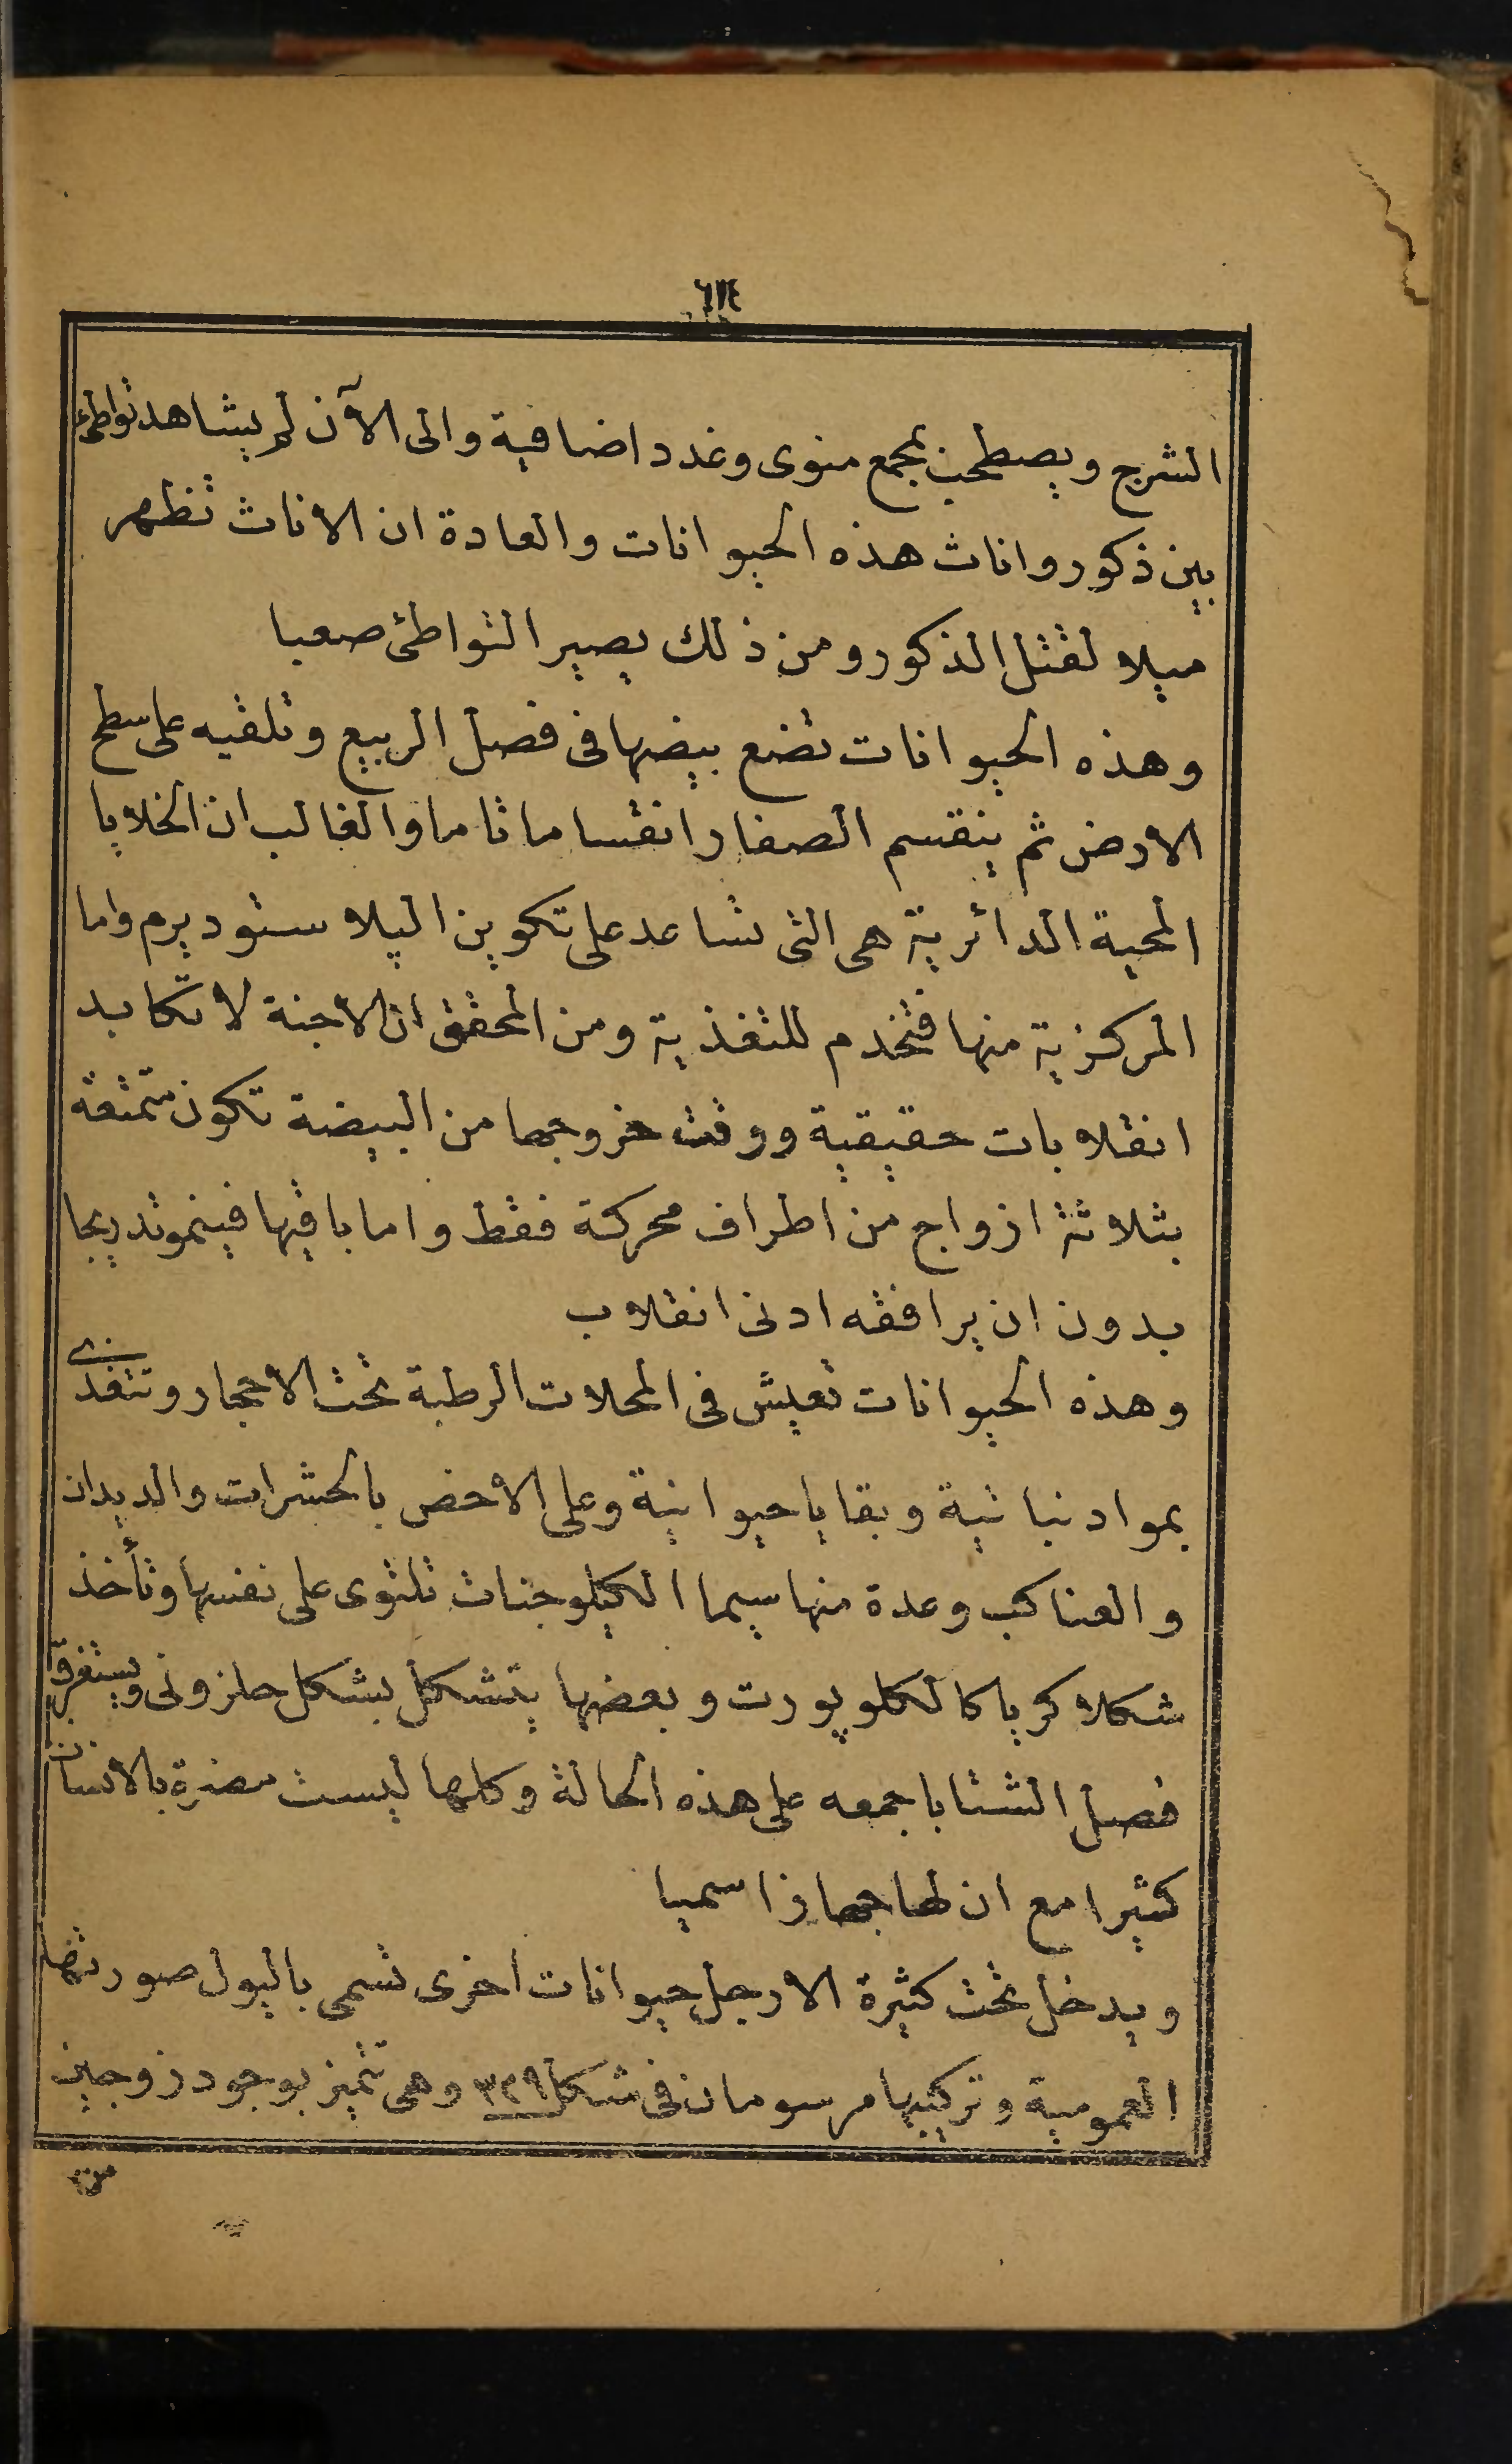 ٦١٤
الشرج ويصطحب بمجمع منوى وغدد اضافية والى الآن لم يشاهد تواطئ
بين ذكور واناث هذه الحيوانات والعادة ان الاناث تظهر
ميلا لقتل الذكور ومن ذلك يصير التواطئ صعبا
وهذه الحيوانات تضع بيضها فى فصل الربيع وتلقيه على سطح
الارض ثم ينقسم الصفار انقساما تاما والغالب ان الخلايا
المحية الدائرية هى التى تساعد على تكوين البلاستوديرم واما
المركزية منها فتخدم للتغذية ومن المحقق ان الاجنة لا تكابد
انقلابات حقيقية ووقت خروجها من البيضة تكون متمتعة
بثلاثة ازواج من اطراف محركة فقط واما باقيها فينمو تدريجا
بدون ان يرافقه ادنى انقلاب
وهذه الحيوانات تعيش فى المحلات الرطبة تحت الاحجار وتتغذى
بمواد نباتية وبقايا حيوانية وعلى الاخص بالحشرات والديدان
والعناكب وعدة منها سيما الكيلوجنات تلتوى على نفسها وتأخذ
شكلا كريا كالكلوپورت وبعضها يتشكل بشكل حلزونى ويستغرق
فصل الشتا باجمعه على هذه الحالة وكلها ليست مضرة بالانسان
كثيرا مع ان لها جهازا سميا
ويدخل تحت كثيرة الارجل حيوانات اخرى تسمى باليول صورتها
العمومية وتركيبها مرسومان فى شكل ٣٢٩ وهى تتميز بوجود زوجين
من